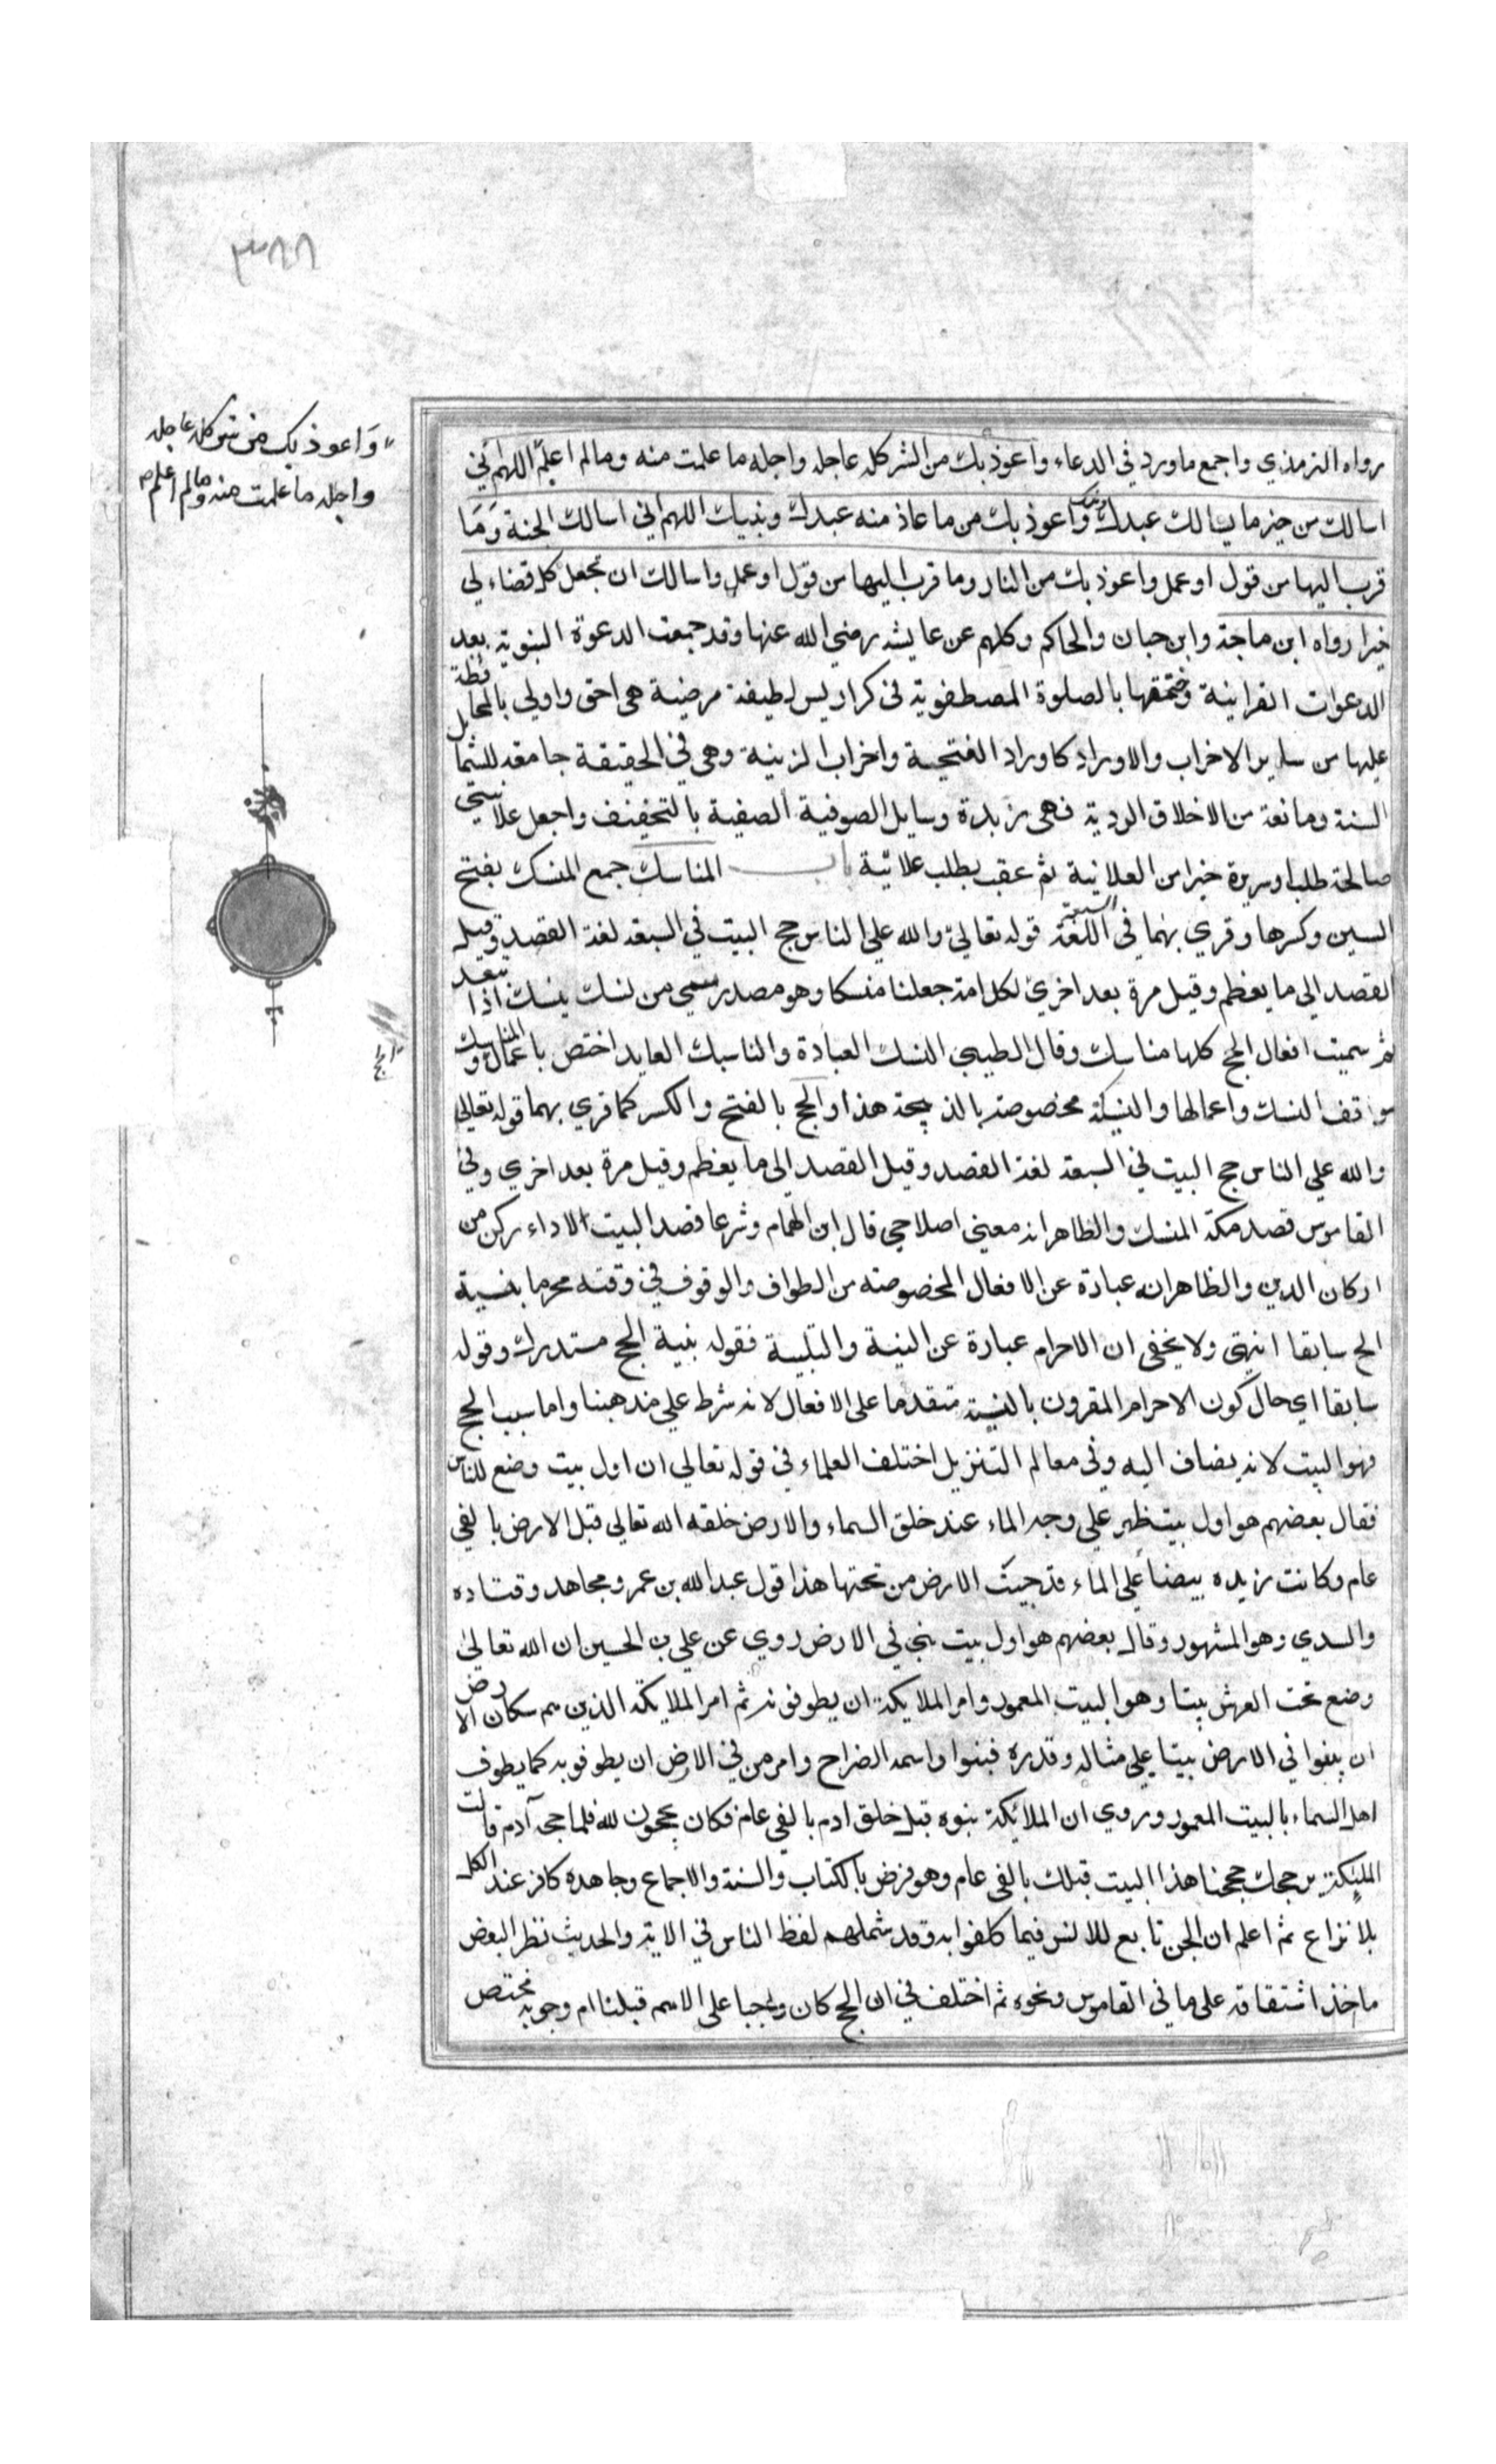 ٣٨٨
وَاعوذ بك من شر كله عاجله
واجله ما علمت منه وما لم اعلم
رواه الترمذي واجمع ما ورد في الدعاء واعوذ بك من الشر كله عاجله واجله ما علمت منه وما لم اعلم اللهم اني
اسالك من خير ما يسالك عبدك ونبيك واعوذ بك من ما عاذ منه عبدك ونبيك اللهم اني اسالك الجنة وَمَا
قرب اليها من قول او عمل واعوذ بك من النار وما قرب اليها من قول او عمل واسالك ان تجعل كل قضاء لي
خيرا رواه ابن ماجة وابن حبان والحاكم وكلهم عن عايشه رضي الله عنها وقد جمعت الدعوة النبوية بعد
الدعوات القرانية وختمتها بالصلوة المصطفوية في كراريس لطيفة مرضية هي احق واولي بالمحافظة
عليها من ساير الاحزاب والاوراد كاوراد الفتحية واحزاب الزينية وهي في الحقيقة جامعه للشمايل
السنة ومانعة من الاخلاق الردية فهي زبدة وسايل الصوفية الصفية بالتخفيف واجعل علانيتي
صالحة طلب اوسريرة خيرا من العلانية ثم عقب بطلب علانية باب المناسك جمع المنسك بفتح
السين وكسرها وقري بهما في السبعة قوله تعالي والله علي الناس حج البيت في السبعه لغة القصد وقيله
القصد الي ما يعظم وقيل مرة بعد اخري لكل امة جعلنا منسكا وهو مصدر سمي من نسك ينسك اذا تعبد
ثم سميت افعال الحج كلها مناسك وقال الطيبي النسك العبادة والناسك العابد اختص باعمال المناسك و
الحج
مواقف النسك واعمالها والنسيكة مخصوصة بالذبيحة هذا والحج بالفتح والكسر كما قري بهما قوله تعالي
والله علي الناس حج البيت في السبعة لغة القصد وقيل القصد الي ما يعظم وقيل مرة بعد اخري وفي
القاموس قصد مكة المنسك والظاهر انه معني اصلاحي قال ابن الهمام وشرعا قصد البيت الاداء ركن من
اركان الدين والظاهر انه عبارة عن الافعال المخصوصته من الطواف والوقوف في وقته محرما بنسية
الحج سابقا انتهي ولا يخفي ان الاحرام عبارة عن النية والتلبية فقوله بنية الحج مستدرك وقوله
سابقا اي حال كون الاحرام المقرون بالنية متقدما علي الافعال لانه شرط علي مذهبنا واما سبب الحج
فهو البيت لانه يضاف اليه وفي معالم التنزيل اختلف العلماء في قوله تعالي ان اول بيت وضع للناس
فقال بعضهم هو اول بيت ظهر علي وجه الماء عند خلق السماء والارض خلقه الله تعالي قبل الارض بالفي
عام وكانت زبده بيضاً علي الماء فدحيت الارض من تحتها هذا قول عبد الله بن عمرو مجاهد وقتاده
والسدي وهو المشهور وقال بعضهم هو اول بيت بني في الارض روي عن علي بن الحسين ان الله تعالي
وضع تحت العرش بيتا وهو البيت المعمور وامر الملايكة ان يطوفونه ثم امر الملايكة الذين هم سكان الارض
ان يبنوا في الارض بيتا علي مثاله وقدره فبنوا واسمه الضراح وامر من في الارض ان يطوفوبه كما يطوف
اهل السماء بالبيت المعمور وروي ان الملائكة بنوه قبل خلق ادم بالفي عام فكان يحجون لله فلما حج آدم قالت
الملئكة بر حجك حججنا هذا البيت قبلك بالفي عام وهو فرض بالكتاب والسنة والاجماع وجاهده كافر عند الكل
بلا نزاع ثم اعلم ان الجن تابع للانس فيما كلفوا به وقد شملهم لفظ الناس في الاية والحديث نظر البعض
ماخذ اشتقاقه علي ما في القاموس ونحوه ثم اختلف في ان الحج كان واجبا علي الامم قبلنا ام وجوبه مختص